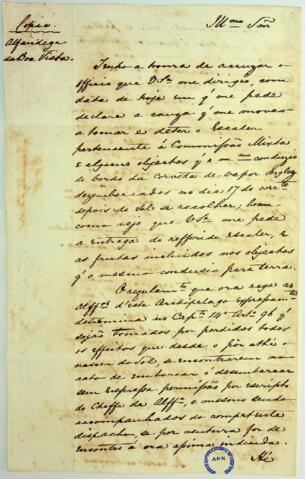 Copia
Alfandega
da Boa Vista
Illmo Snr
Tenho a honra de accuzar o
officio que VSa me dirigio, com
data de hoje em q' me pede
declare a cauza q' me moveo
a tomar e deter o Escaler
pertencente á Commissão Mixta
e alguns objectos q' o mmo conduzio
de bordo da corveta de vapor
dezembarcados no dia 17 do corrte
depois do Sol se recolher; bem
como vejo que VSa me pede
a entrega do refferido Escaler, e
as frutas incluidas nos objectos
q' o mesmo conduzio para terra.
O regulamto que ora rege as
Alffas d'este Archipelago expressamte
determina no Capo 14 Arto 96 q'
sejão tomados por perdidos todos
os effeitos que desde o pôr athé o
nascer do Sol, se encontrarem no
acto de embarcar e desembarcar
sem expressa permissão por escripto
do Cheffe da Alffa, e mesmo sendo
acompanhados do competente
dispacho, se por ventura for de
encontro á ora assima indicada.
AHN